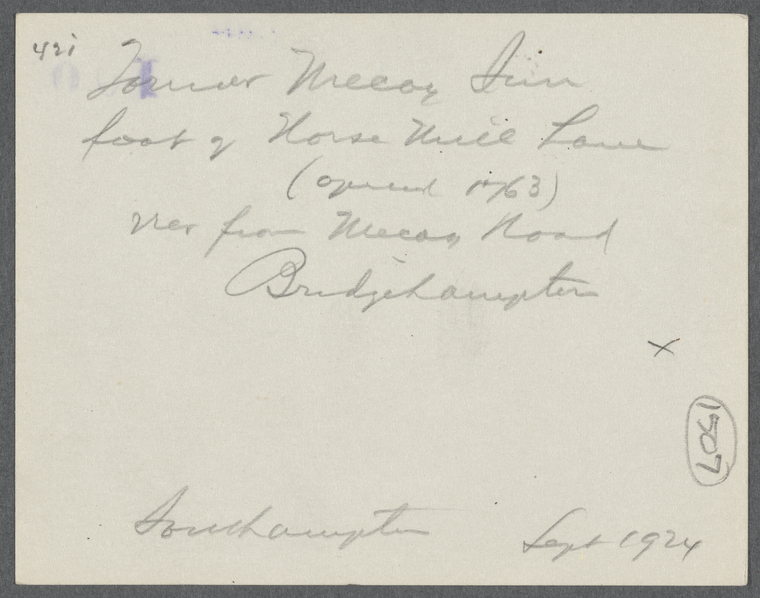 421
Former Mecox Inn
foot of Horse Mill Lane
(opened 1763)
view from Mecox Road
Bridgehampton
x
1507
Southampton Sept 1924